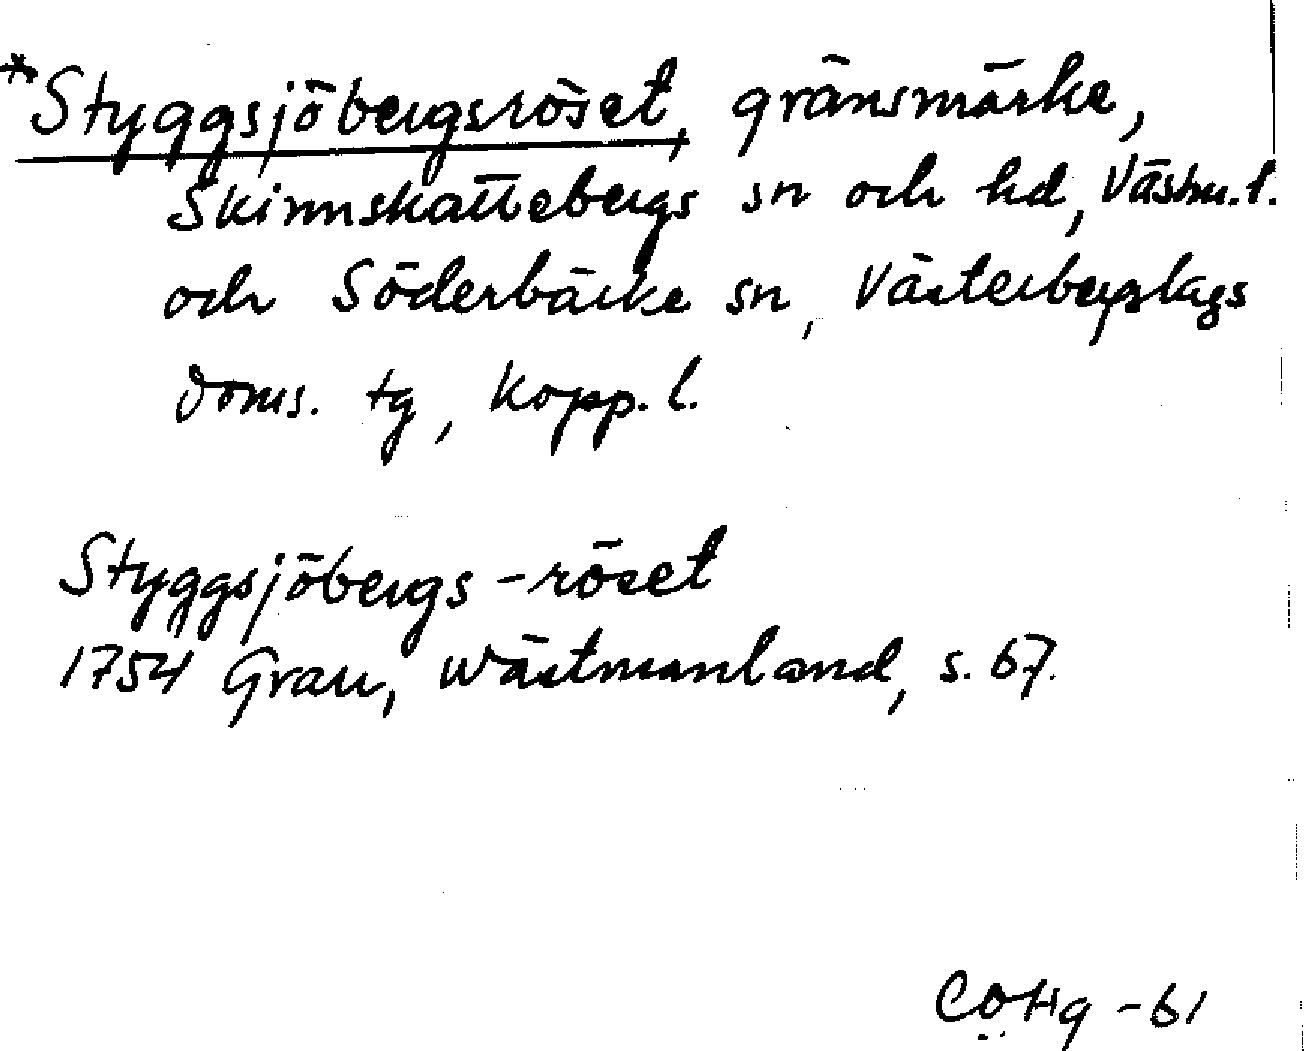 *Styggsjöbergsröset, gränsmärke,
Skinnskattebergs sn och hd, Västm. l.
och Söderbärke sn, Västerbergslags
doms. tg, Kopp. l.
Styggsjöbergs-röset
1754 Grau, Wästmanland, s. 67.
CÖHg -61